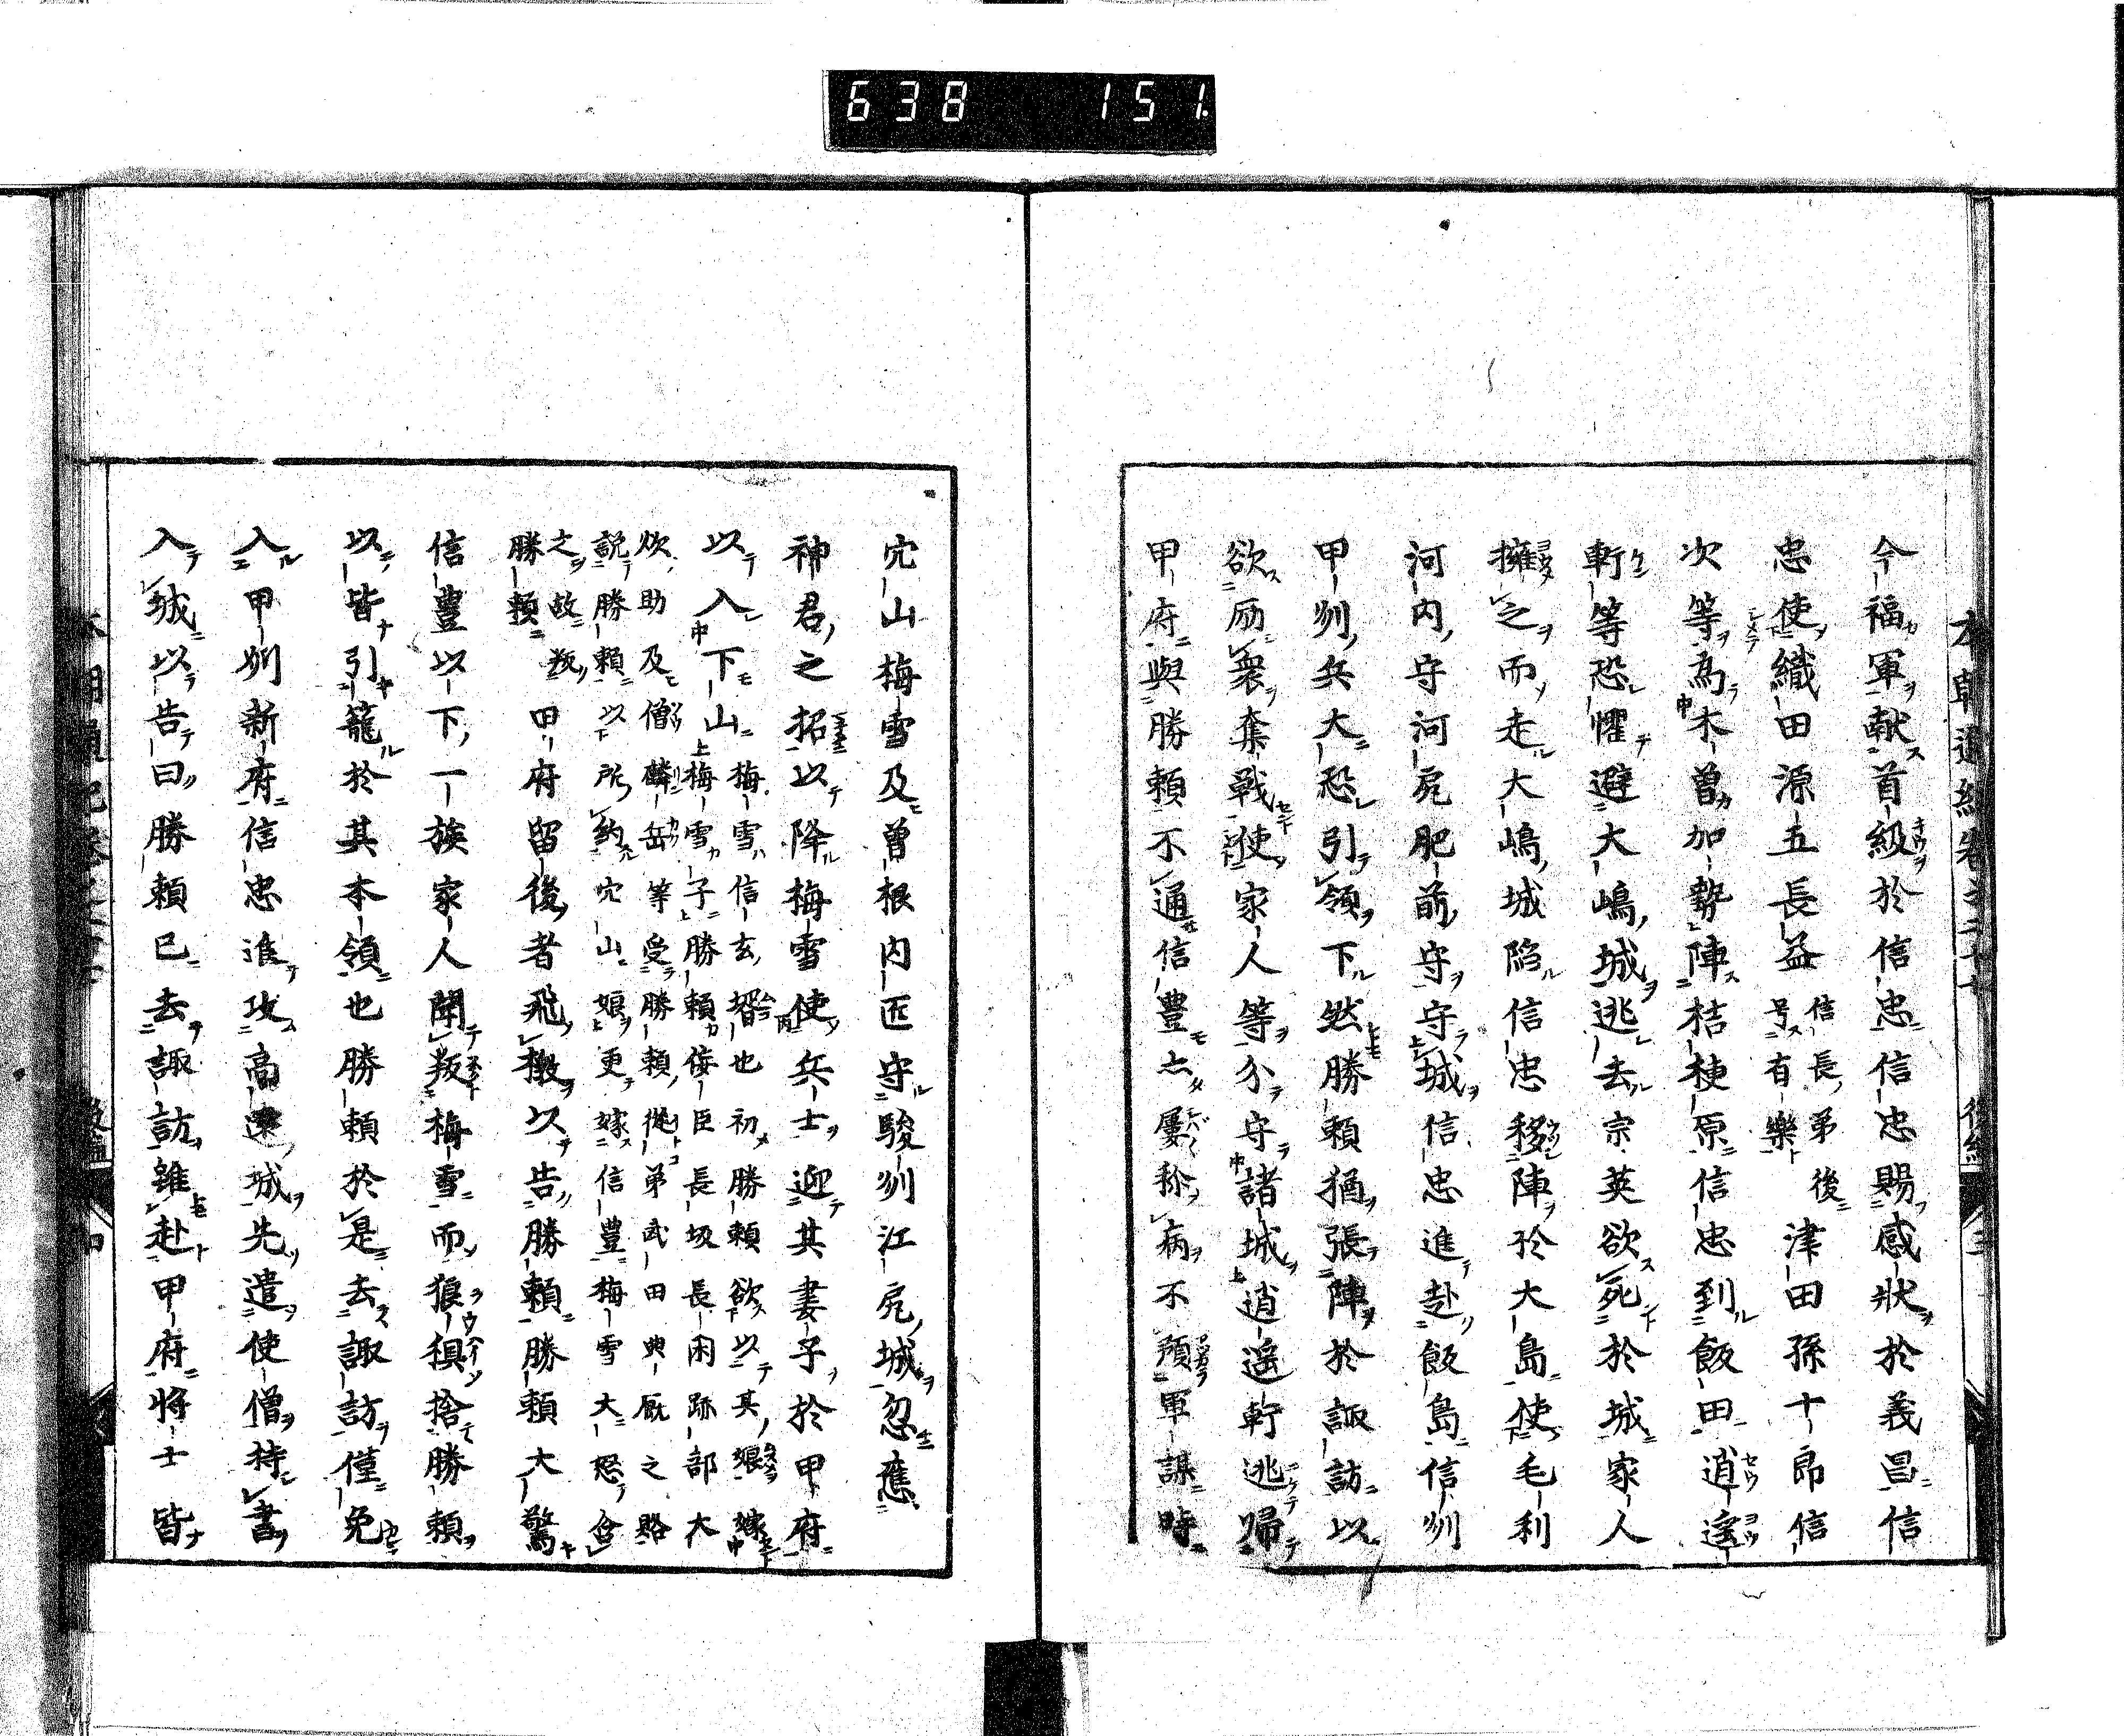 638 151.
今福軍献首級於信忠信忠賜感狀於義昌信
忠使織田源五長益信長弟後号有樂津田孫十郎信
次等為木曽加勢陣桔梗原信忠到飯田逍遥
軒等恐懼避大嶋城逃去宗英欲死於城家人
擁之而走大嶋城陥信忠移陣於大島使毛利
河内守河尻肥前守守城信忠進赴飯島信刕
甲刕兵大恐引領下然勝頼猶張陣於諏訪以
欲励衆奪戰使家人等分守諸城逍遥軒逃歸
甲府與勝頼不通信豊亦屢称病不預軍謀時
穴山梅雪及曽根内匠守駿刕江尻城忽應
神君之招以降梅雪使兵士迎其妻子於甲府
以入下山梅雪信玄婿也初勝頼欲以其娘嫁
梅雪子勝頼佞臣長坂長閑跡部大
炊助及僧麟岳等受勝頼從弟武田典厩之賂
説勝頼以下所約穴山娘更嫁信豊梅雪大怒含
之故叛
勝頼甲府留後者飛檄以告勝頼勝頼大驚
信豊以下一族家人聞叛梅雪而狼狽捨勝頼
以皆引籠於其本領也勝頼於是去諏訪僅免
入甲刕新府信忠進攻高遠城先遣使僧持書
入城以告曰勝頼已去諏訪雖赴甲府将士皆